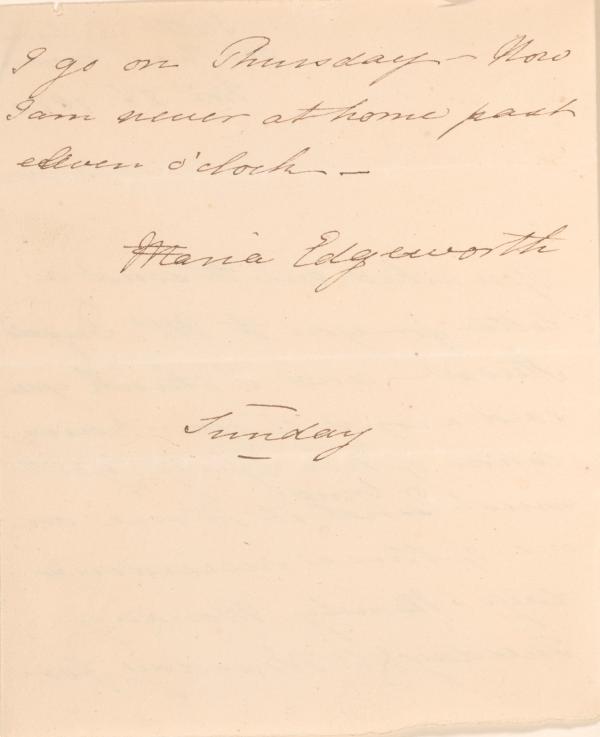 I go on Thursday – Now
I am never at home past
eleven o'clock –
Maria Edgeworth
Sunday